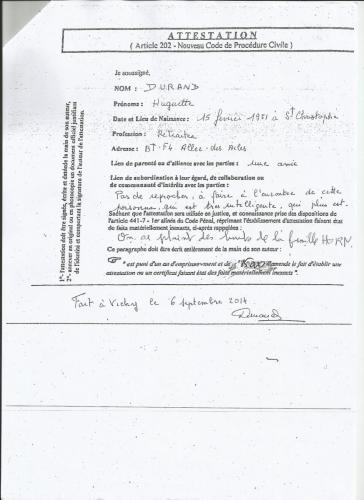 ATTESTATION
( Article 202 - Nouveau Code de Procédure Civile )
Je soussigné,
NOM : DURAND
Prénome : Huguette
Date et Lieu de Naissance : 15 février 1951 à St Christophe
Profession : Retraitée
Adresse : BT. F4 Allée des Ailes
Lien de parenté ou d'alliance avec les parties : une amie
Lien de subordination à leur égard, de collaboration ou
de communauté d'intérêts avec les parties :
Pas de reproches, à faire à l'encontre de cette
personne, qui est très intelligente, qui plus est.
Sachant que l'attestation sera utilisée en justice, et connaissance prise des dispositions de
l'article 441-7 - 1er alinéa du Code Pénal, réprimant l'établissement d'attestation faisant état
de faits matériellement inexacts, ci-après rappelées :
On se plaint des bruits de la famille HORN.
Ce paragraphe doit être écrit entièrement de la main de son auteur :
" est puni d'un an d'emprisonnement et de d'amende le fait d'établir une
attestation ou un certificat faisant état des faits matériellement inexacts "
Fait à Vichy le 6 septembre 2014.
Durand
1°- l'attestation doit être signée, écrite et datée de la main de son auteur,
2°- annexer en original ou en photocopie un document officiel justifiant
de l'identité et comportant la signature de l'auteur de l'attestation.